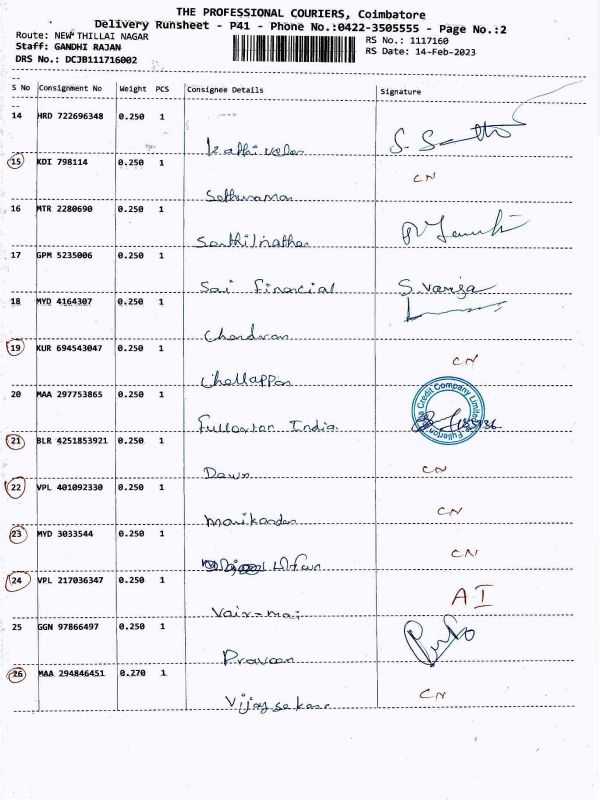 THE PROFESSIONAL COURIERS, Coimbatore
Delivery Runsheet - P41 - Phone No.:0422-3505555 - Page No.:2
Route: NEW THILLAI NAGAR
RS No.: 1117160
Staff: GANDHI RAJAN
RS Date: 14-Feb-2023
DRS No.: DCJB111716002
S No Consignment No Weight PCS Consignee Details Signature
14 HRD 722696348 0.250 1
Kathivelan S. Senth
15 KDI 798114 0.250 1 CN
Sethuraman
16 MTR 2280690 0.250 1
Senthilnathan
17 GPM 5235006 0.250 1
Sai Financial S. Varsga
18 MYD 4164307 0.250 1
Chandran
19 KUR 694543047 0.250 1 CN
Chellappan
20 MAA 297753865 0.250 1
Fullerton India Fullerton India Credit Company Limited
21 BLR 4251853921 0.250 1 CN
Dawn
22 VPL 401092330 0.250 1 CN
Manikandan
23 MYD 3033544 0.250 1 CN
24 VPL 217036347 0.250 1 AI
Vairamai
25 GGN 97866497 0.250 1
Praveen
26 MAA 294846451 0.270 1 CN
Vijaysekar